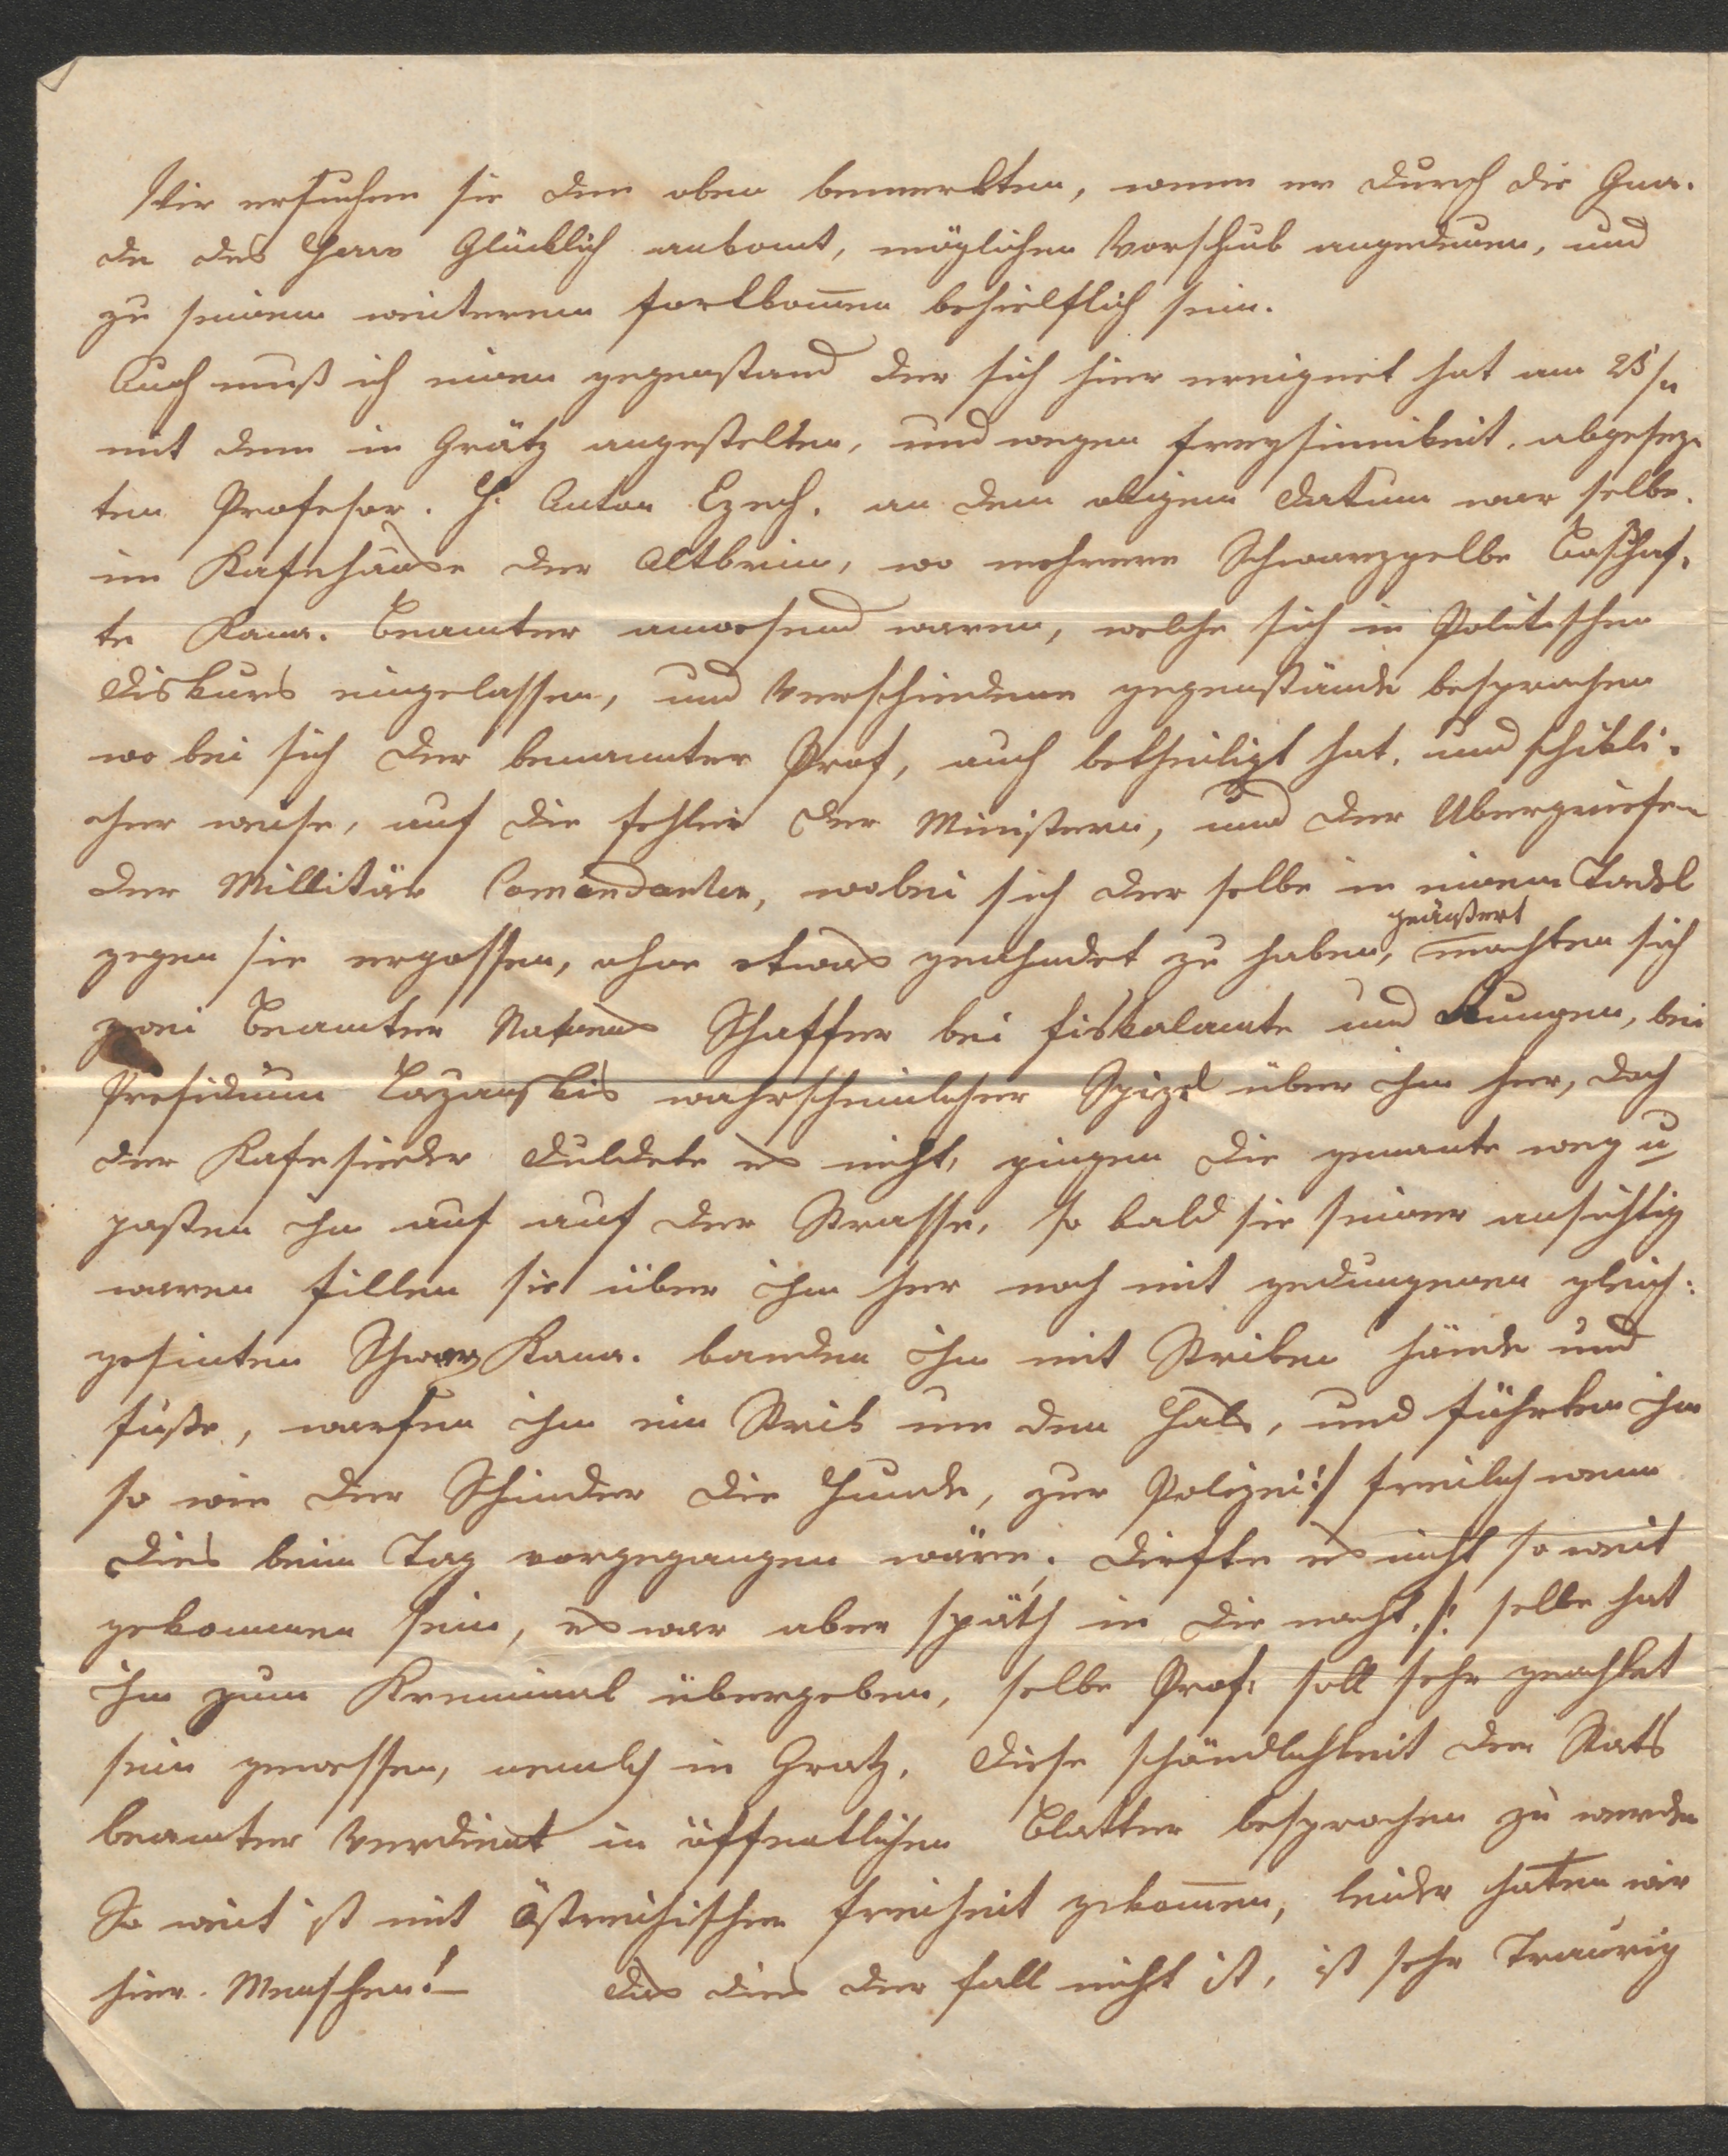 Wir ersuchen sie den oben bemerkten, wenn er durch die Gna-
de des Herrn Glücklich ankomt, möglichen Vorschub angedeuen, und
zu seinem weiteren fortkom̄en behielflich sein.
Auch muß ich einen gegenstand der sich hier ereignet hat am 25/
mit dem in Grätz angestelten, und wegen freysinnikeit, abgesez-
ten Profesor. H. Anton Ezech. an dem obigem datum war selbe.
im Kafehause der Altbrün, wo mehrere Schwarzgelbe
te Kam. Beamter anwesend waren, welche sich in Politischen
diskurs eingelassen, und Verschiedene gegenstände besprochen
wo bei sich der benannter Prof, auch betheiligt hat, und schikli-
cher weise, auf die fehler der Ministern, und der Ubergriefe
der Millitär Comandanten, wobei sich der selbe in einem Tadel
gegen sie ergossen, ohne etwas geahndet zu haben, machten sich
geäußert
zwei Beamter Namens Schaffer bei fiskalamte und Kungen, bei
Presidium Lazanskis wahrscheinlicher Spizl über ihn her, doch
der Kafesieder duldete es nicht, gingen die genante weg u
paßten ihn auf auf der Strasse, so bald sie seiner ansichtig
waren fillen sie über ihn her noch mit gedungenen gleich:
gesinten Schwarz Kam. banden ihn mit Striken hände und
füße, warfen ihn ein Strik um den Hals, und führten ihn
so wie der Schinder die Hunde, zur Polizei:/ freilich wenn
dies beim Tag vorgegangen wäre, dirfte es nicht so weit
gekommen sein, es war aber späth in die nacht./: selbe hat
ihn zum Kreminal übergeben, selbe Prof: soll sehr geachtet
sein gewessen, nemlich in Gratz, diese schändlichkeit der Stats
beamter Verdient in öffentlichen Blatter besprochen zu werden
So weit ist mit östreichischen freiheit gekom̄en, leider haten wir
hier. Menschen! das dies der fall nicht ist, ist sehr Traurig